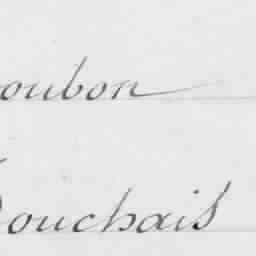 oubon
ouchais